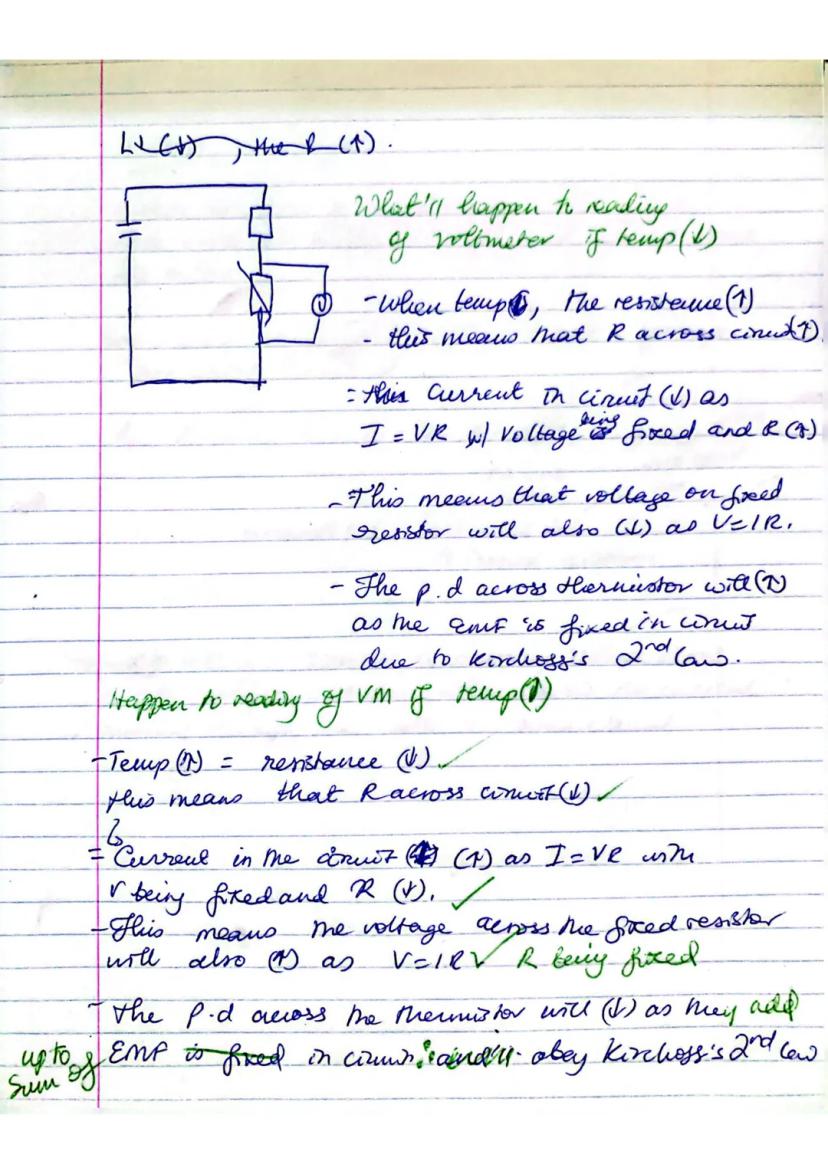 (↓), the R (↑).
What'll happen to reading
of voltmeter if temp(↓)
V
- When temp, the resistance(↑)
- this means that R across circuit(↑).
= this Current in circuit (↓) as
I = VR w/ voltage being is fixed and R (↑)
- This means that voltage on fixed
resistor will also (↓) as V=IR.
- The p.d across thermistor will (↑)
as the EMF is fixed in circuit
due to Kirchoff's 2nd law.
Happen to reading of VM if temp(↑)
- Temp (↑) = resistance (↓) ✓
this means that R across circuit(↓) ✓
= Current in the circuit (↑) as I=VR with
V being fixed and R (↓). ✓
- This means the voltage across the fixed resistor
will also (↑) as V=IR ✓ R being fixed
- the p.d across the thermistor will (↓) as they add
up to sum of EMF is fixed in circuit obey Kirchoff's 2nd law